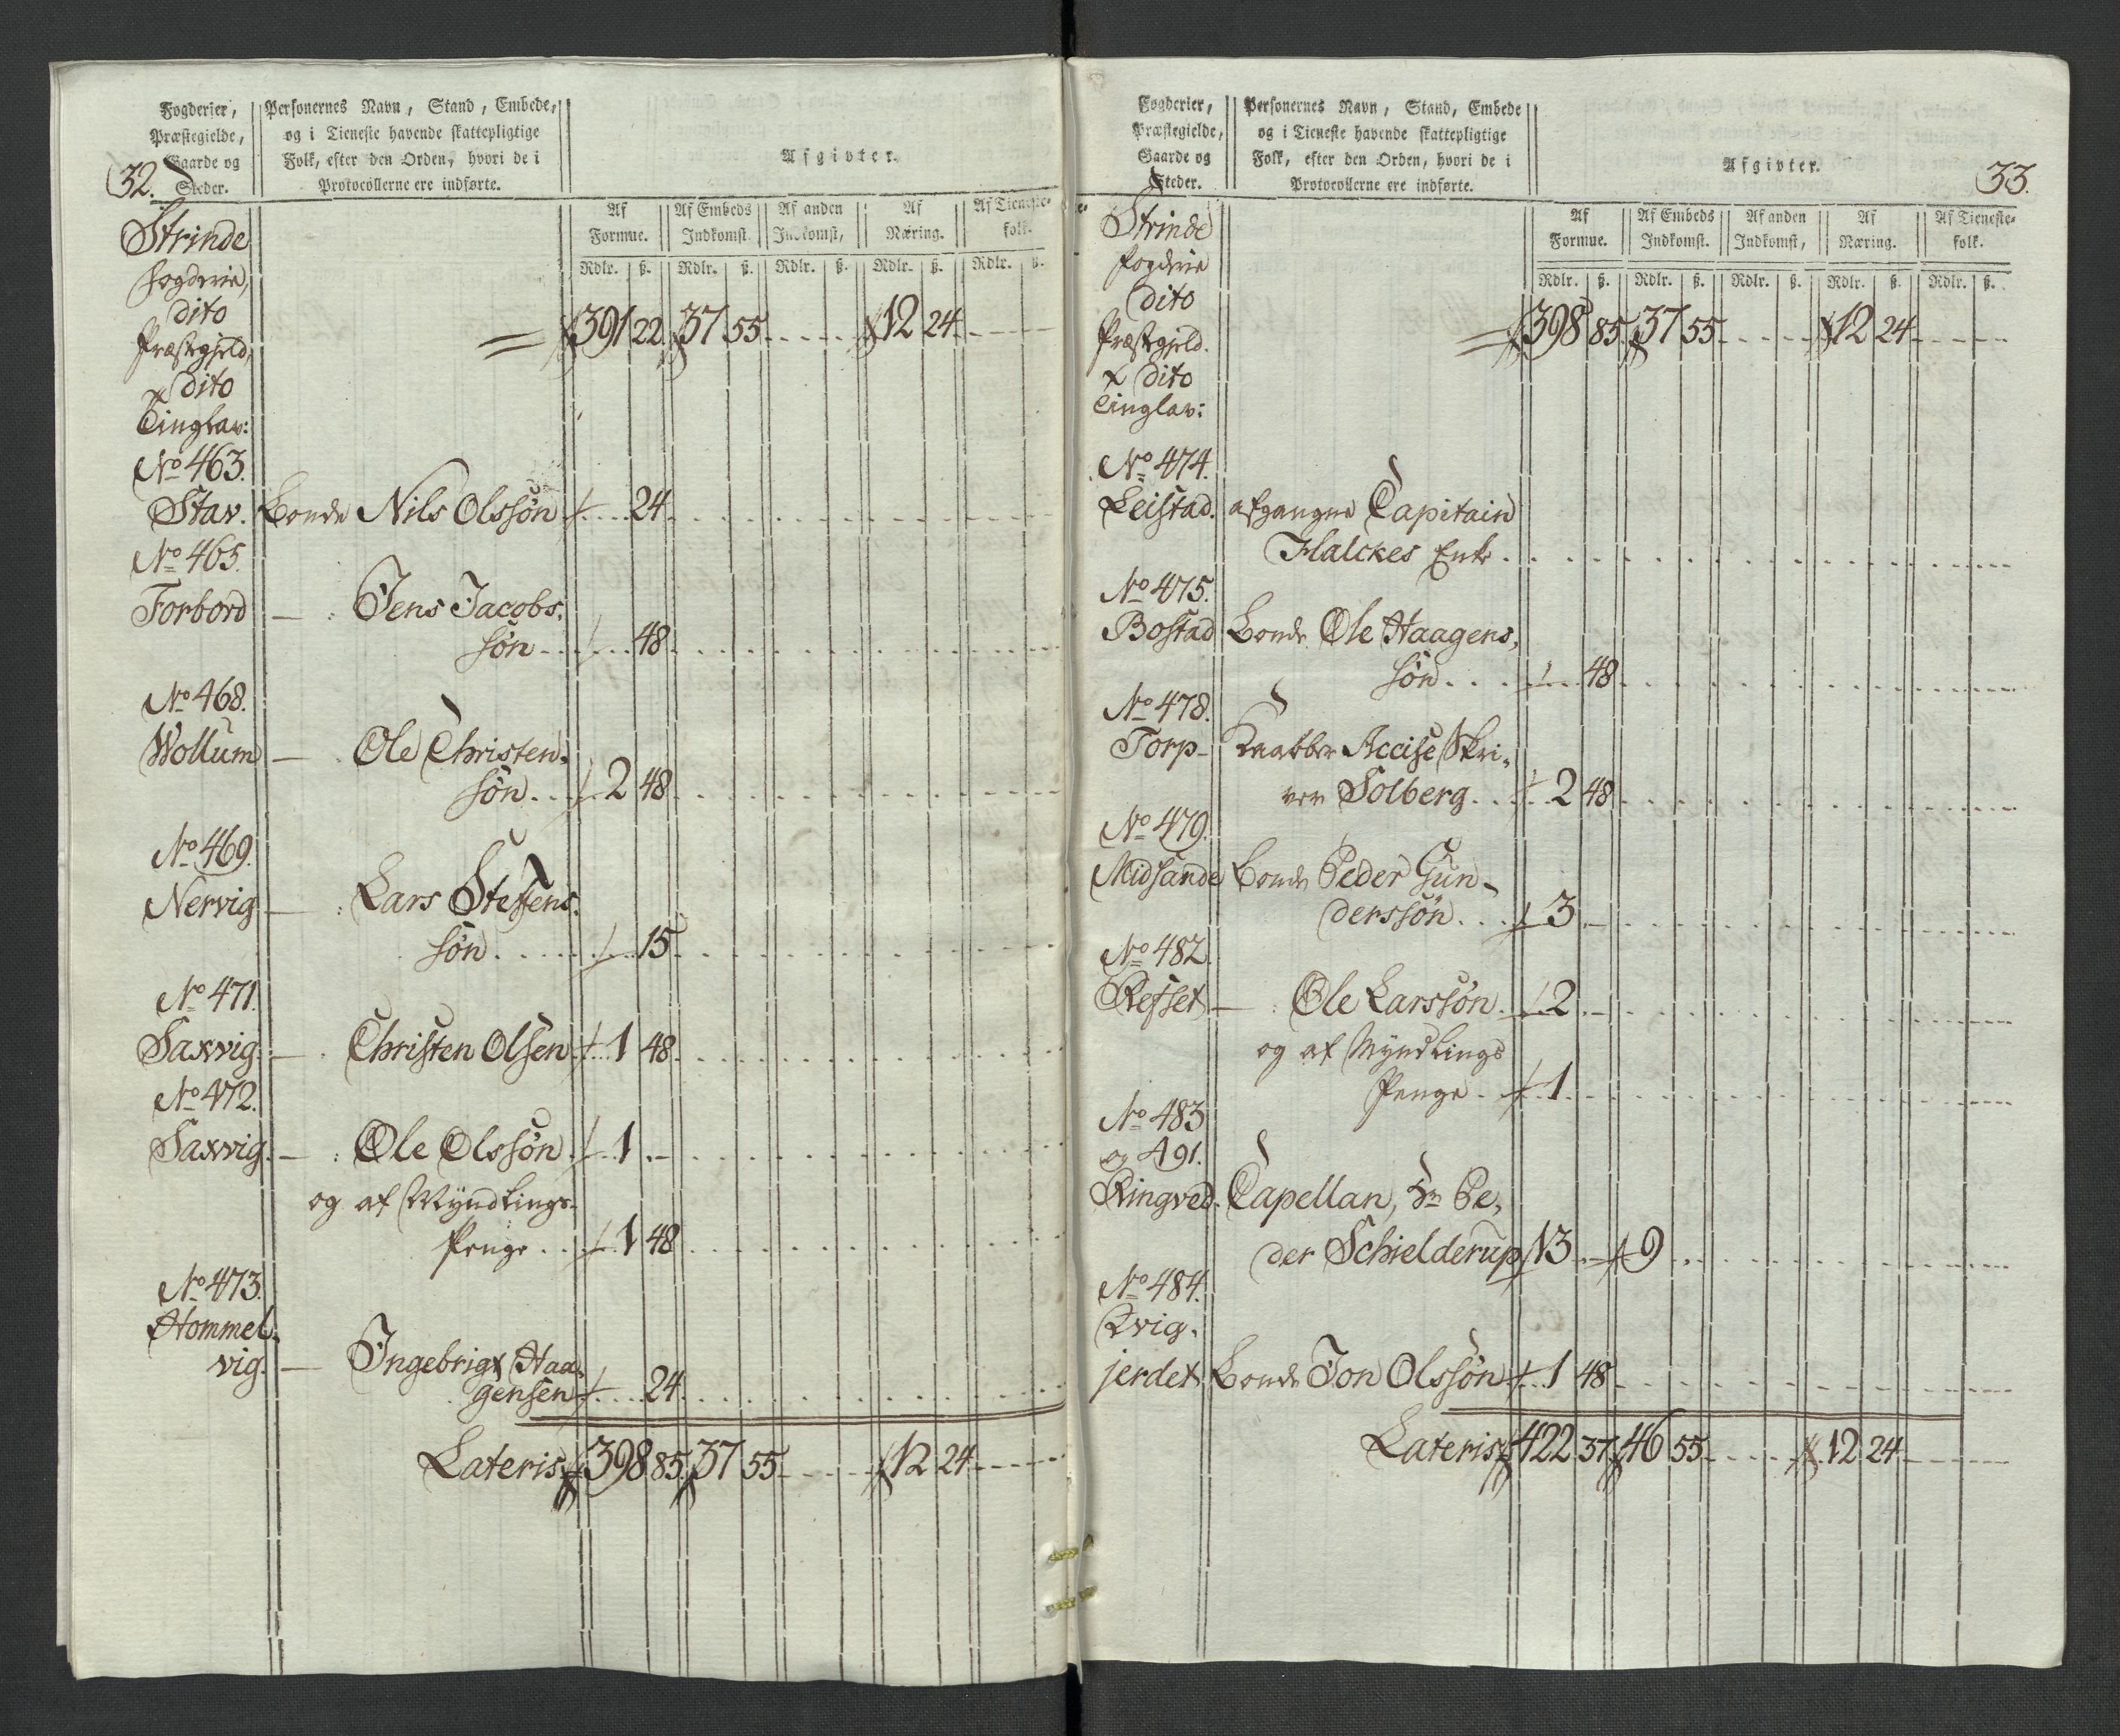 32.
Fogderier,
Præstegielde,
Gaarde og
Steder.
Personernes Navn, Stand, Embede,
og i Tieneste havende skattepligtige
Folk, efter den Orden, hvori de i
Protocollerne ere indførte.
Afgivter.
Af Formue. Af Embeds Indkomst. Af anden Indkomst, Af Næring. Af Tieneste-folk.
Rdlr. ß. Rdlr. ß. Rdlr. ß. Rdlr. ß. Rdlr. ß.
Strinde
Fogderie,
dito
Præstegjeld, 391 22. 37 55 12 24
dito
Tinglav:
No 463.
Stav. Bonde Nils Olssøn 24
No 465.
Forbord — Jens Jacobs-
søn 48
No 468.
Wollum — Ole Christen-
søn 2 48
No 469.
Nervig — Lars Steffens-
søn 15
No 471.
Saxvig — Christen Olsen 1 48
No 472.
Saxvig. — Ole Olssøn 1 -
og af Myndlings-
Penge 1 48
No 473.
Hommel-
vig. — Ingebrigt Haa-
gensen 24
Lateris 398 85. 37 55 12 24
33.
Fogderier,
Præstegielde,
Gaarde og
Steder.
Personernes Navn, Stand, Embede
og i Tieneste havende skattepligtige
Folk, efter den Orden, hvori de i
Protocollerne ere indførte.
Afgivter.
Af Formue. Af Embeds Indkomst. Af anden Indkomst, Af Næring. Af Tieneste-folk.
Rdlr. ß. Rdlr. ß. Rdlr. ß. Rdlr. ß. Rdlr. ß.
Strinde
Fogderie
dito
Præstegjeld. 398 85 37 55 12 24
dito
Tinglav:
No 474.
Leistad. afgangne Capitain
Halckes Enke
No 475.
Bostad Bonde Ole Haagens-
søn 48
No 478.
Torp- Kaabber Accise Skri-
ver Solberg 2 48
No 479.
Midsande Bonde Peder Gun-
derssøn 3 -
No 482
Refset — Ole Larssøn 2 -
og af Myndlings
Penge 1
No 483
og 491.
Ringved. Capellan, Hr Pe-
der Schielderup 13 - 9
No 484.
Qvig-
jerdet Bonde Jon Olssøn 1 48
Lateris 422 37 46 55 12 24